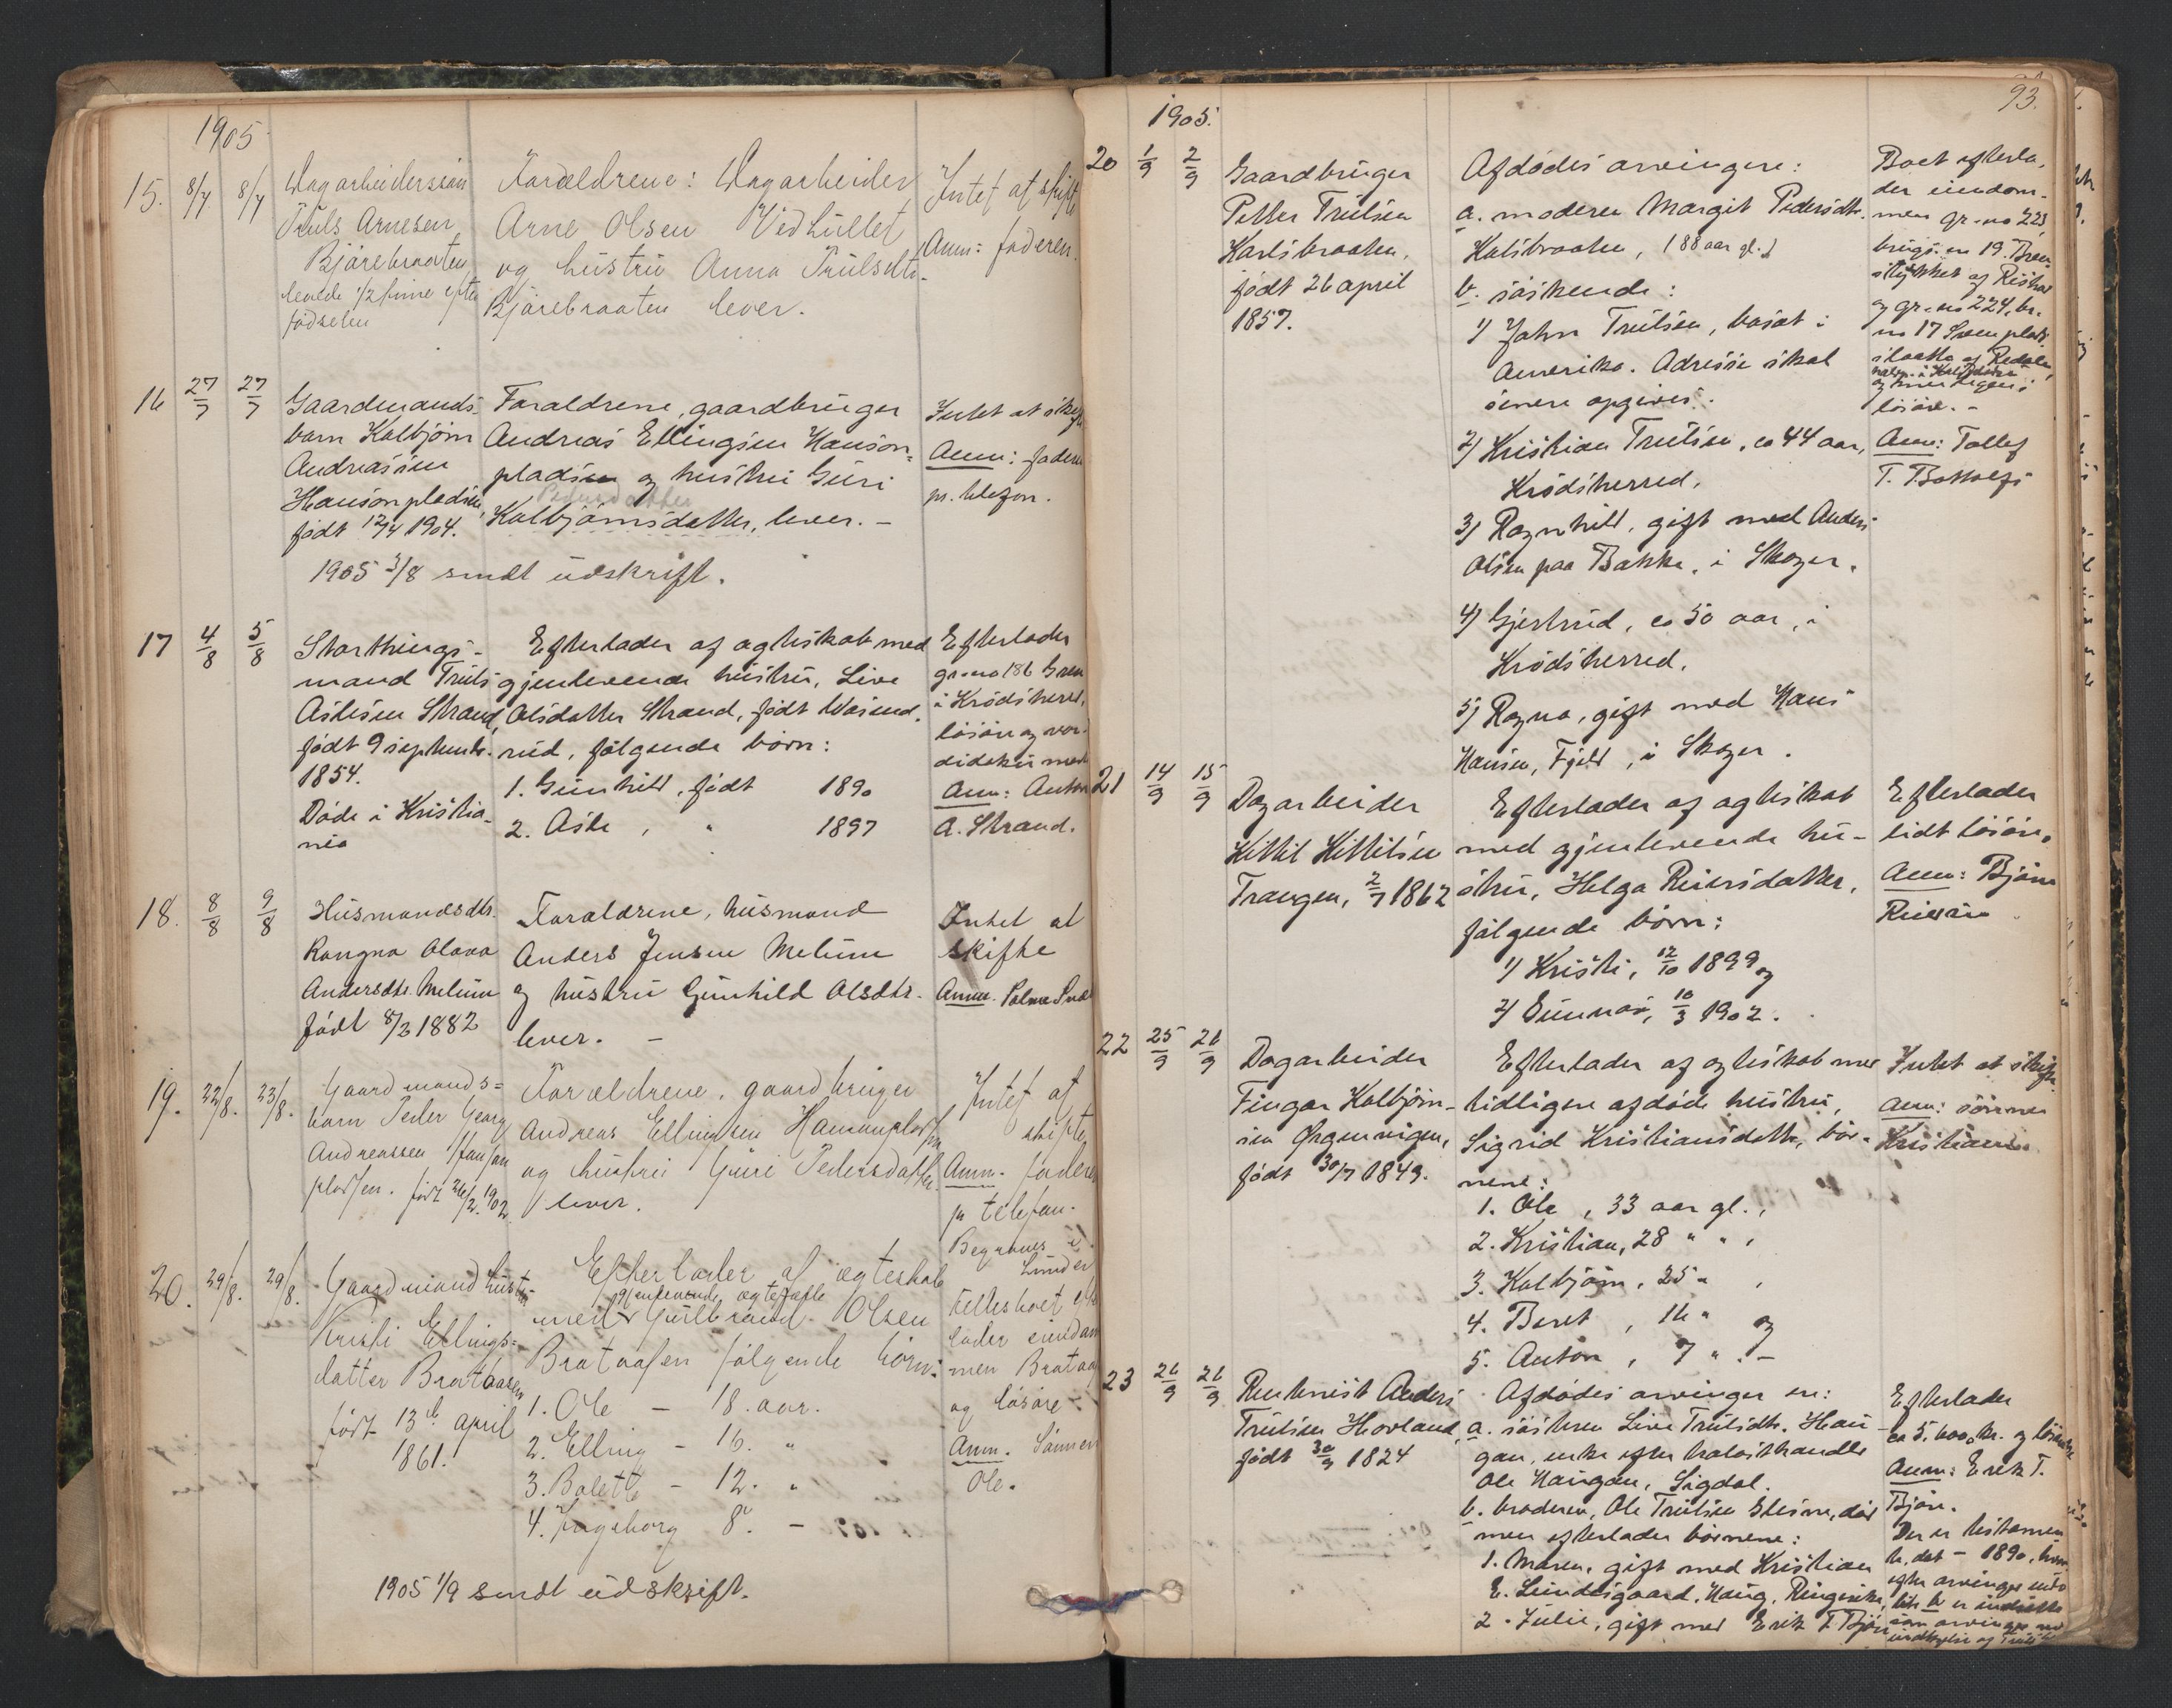 1905
15. 8/7 8/7
Dagarbeiderssøn
Truls Arnesen
Bjørebraaten
levede 1/2 time efter
fødselen
Forældrene: Dagarbeider
Arne Olsen Vedhullet
og hustru Anna Trulsdtr.
Bjørebraaten lever.
Intet at skifte
Anm: faderen.
16 27/7 27/7
Gaardmands-
barn Kolbjørn
Andreassen
Hansonpladsen,
født 12/4 1904.
Forældrene, gaardbruger
Andreas Ellingsen Hanson-
pladsen og hustru Guri
Pedersdatter
Kolbjørnsdatter, lever. -
Intet at skifte
Anm: faderen
pr. telefon.
1905 3/8 sendt udskrift.
17 4/8 5/8
Storthings-
mand Truls
Aslesen Strand,
født 9 septembr.
1854.
Døde i Kristia-
nia
Efterlader af ægteskab med
gjenlevende hustru, Live
Olsdatter Strand, født Wasend-
rud, følgende børn:
1. Gunhild, født 1890
2. Asle , " 1897
Efterlader
gr=no 186
i Krødsherred,
løsøre og vær-
didokumenter
Anm: Anton
A. Strand.
18. 8/8 9/8
Husmandsdtr.
Rangna Olava
Andersdtr. Melum
født 8/3 1882
Forældrene, husmand
Anders Jensen Melum
og hustru Gunhild Olsdtr.
lever. -
Intet at
skifte
Anm. Palme
19. 22/8. 23/8.
Gaardmands=
barn Peder Georg
Andreassen Hanson
pladsen. født 26/2. 1902.
Forældrene, gaardbruger
Andreas Ellingsen Hansonpladsen
og hustru Guri Pedersdatter.
lever.
Intet at
skifte
Anm. faderen
pr telefon.
Begraves i
Lunder
20. 29/8. 29/8.
Gaardmand hustru
Kristi Ellings=
datter Brataasen
født 13de april
1861.
Efterlader af ægteskab
gjenlevende ægtefælle
med Gulbrand Olsen
Brataasen følgende børn:
1. Ole - 18. aar.
2. Elling - 16. "
3. Bolette - 12. "
4. Ingeborg 8. -
Fællesboet efter
lader eiendom
men Brataas
og løsøre -
Anm. Sønnen
Ole.
1905 1/9 sendt udskrift.
93.
1905.
20 1/9 2/9
Gaardbruger
Petter Trulsen
Karlsbraaten,
født 26 april
1857.
Afdødes arvingere:
a. moderen Margit Pedersdtr.
Kalsbraaten, (88 aar gl.)
b. søskende:
1) John Trulsen, bosat i
Amerika. Adresse skal
senere opgives.
2) Kristian Trulsen, ca 44 aar,
Krødsherred.
3) Ragnhild, gift med Anders
Olsen paa Bakke, i Skoger.
4) Gjertrud, ca 50 aar, i
Krødsherred.
5) Ragna, gift med Hans
Hansen, Fjeld, i Skoger.
Boet efterla-
der eiendom-
men gr=no 223
brugs=no 19
stykket af
og gr=no 224, br.
no 17
løsøre. -
Anm: Tollef
T. Bottolfs
21 14/9 15/9
Dagarbeider
Kittil Kittilsen
Trangen, 2/7 1862
Efterlader af ægteskab
med gjenlevende hu-
stru, Helga Reiersdatter,
følgende børn:
1) Kristi, 12/10 1899 og
2) Gunnar, 10/3 1902.
Efterlader
lidt løsøre.
Anm: Bjørn
Reiersøn
22 25/9 26/9
Dagarbeider
Fingar Kolbjørn-
sen Ørgenvigen,
født 30/7 1849.
Efterlader af ægteskab med
tidligere afdøde hustru,
Sigrid Kristiansdatter, bør-
nene:
1. Ole , 33 aar gl.,
2. Kristian, 28 " " ,
3. Kolbjørn, 25 " ,
4. Beret , 16 " og
5. Anton , 7 " . -
Intet at skifte
Anm: sønnen
Kristian.
23 26/9 26/9
Rentenist Anders
Trulsen Hovland,
født 30/9 1824
Afdødes arvinger er:
a. søsteren Live Trulsdtr. Hau-
gan, enke efter
Ole Haugan, Sigdal.
b. broderen, Ole Trulsen Glesne, død
men efterlader børnene:
1. Maren, gift med Kristian
E. Lundesgaard, Haug, Ringerike,
2. Julie, gift med Erik T. Bjøre
Efterlader
ca 5.600 kr. og løsøre
Anm: Erik T.
Bjøre.
Der er testamen
te, dat - 1890, hvor
efter arvinger